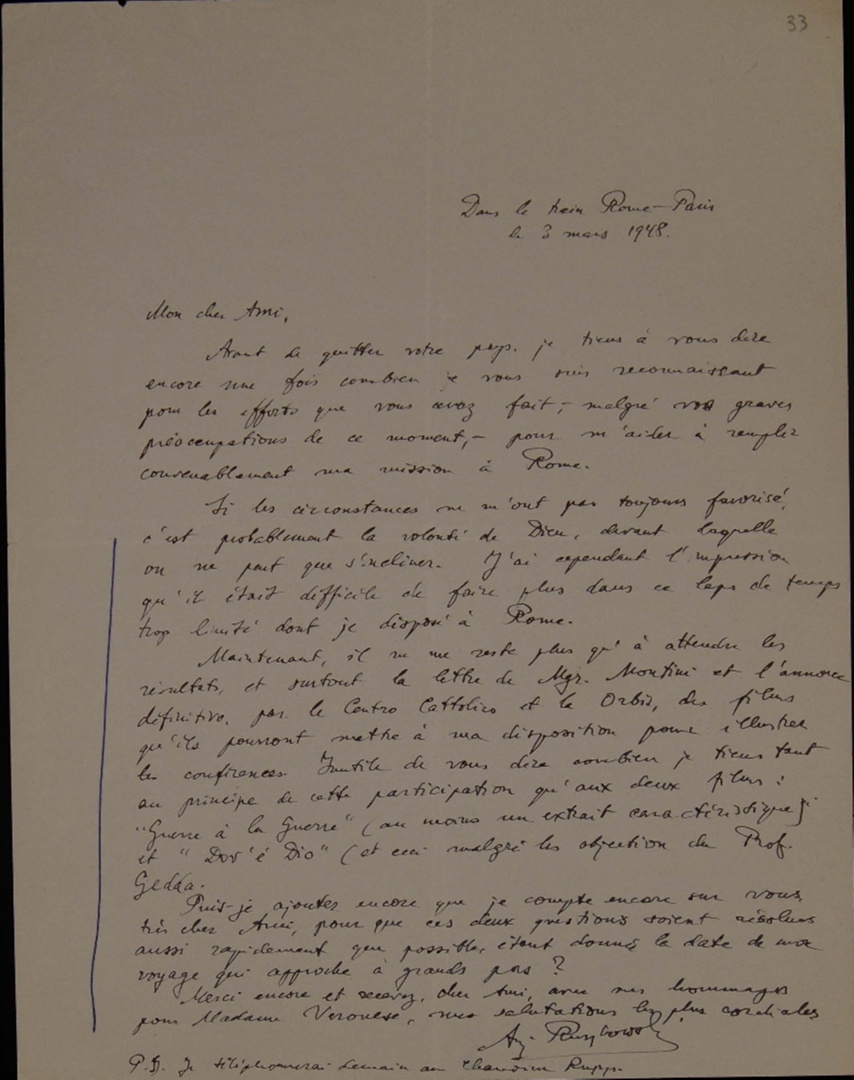 33
Dans le train Rome-Paris
le 3 mars 1948.
Mon cher Ami,
Avant de quitter votre pays, je tiens à vous dire
encore une fois combien je vous suis reconnaissant
pour les efforts que vous avez fait, - malgré vos graves
préoccupations de ce moment, - pour m'aider à remplir
convenablement ma mission à Rome.
Si les circonstances ne m'ont pas toujours favorisé,
c'est probablement la volonté de Dieu, devant laquelle
on ne peut que s'incliner. J'ai cependant l'impression
qu'il était difficile de faire plus dans ce laps de temps
trop limité dont je disposé à Rome.
Maintenant, il ne me reste plus qu'à attendre les
résultats, et surtout la lettre de Mgr. Montini et l'annonce
définitive, par le Centro Cattolico et la Orbis, des films
qu'ils pourront mettre à ma disposition pour illustrer
les conférences. Inutile de vous dire combien je tiens tant
au principe de cette participation qu'aux deux films :
"Guerre à la Guerre" (au moins un extrait caractéristique)
et "Dov'è Dio" (et ceci malgré les objection du Prof.
Gedda.
Puis-je ajouter encore que je compte encore sur vous,
très cher Ami, pour que ces deux questions soient résolues
aussi rapidement que possible, étant donné la date de mon
voyage qui approche à grands pas ?
Merci encore et recevez, cher Ami, avec mes hommages
pour Madame Veronese, mes salutations les plus cordiales
P.S. Je téléphonerai demain au Chanoine Rupp.